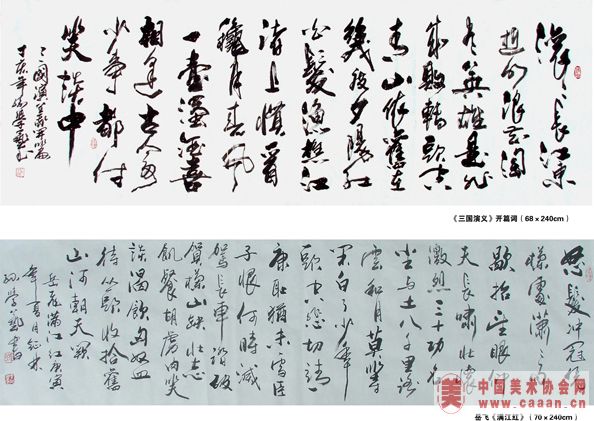 滚滚长江东
逝水浪花淘
尽英雄是非
成败轉頭空
青山依舊在
幾度夕陽红
白髮渔樵江
渚上惯看
秋月春風
一壶濁酒喜
相逢古今多
少事都付
笑谈中
三国演义开篇
《三国演义》开篇词（68×240cm）
怒髮冲冠凭
欄處潇潇雨
歇抬望眼仰
天长啸壮懷
激烈三十功名
尘与土八千里路
雲和月莫等
闲白了少年
頭空悲切靖
康恥猶未雪臣
子恨何時減
驾长車踏破
賀蘭山缺壮志
飢餐胡虏肉笑
談渴飲匈奴血
待從頭收拾舊
山河朝天闕
岳飛满江红庚寅
岳飞《满江红》（70×240cm）
美
中国美术协会网
www.caaan.cn